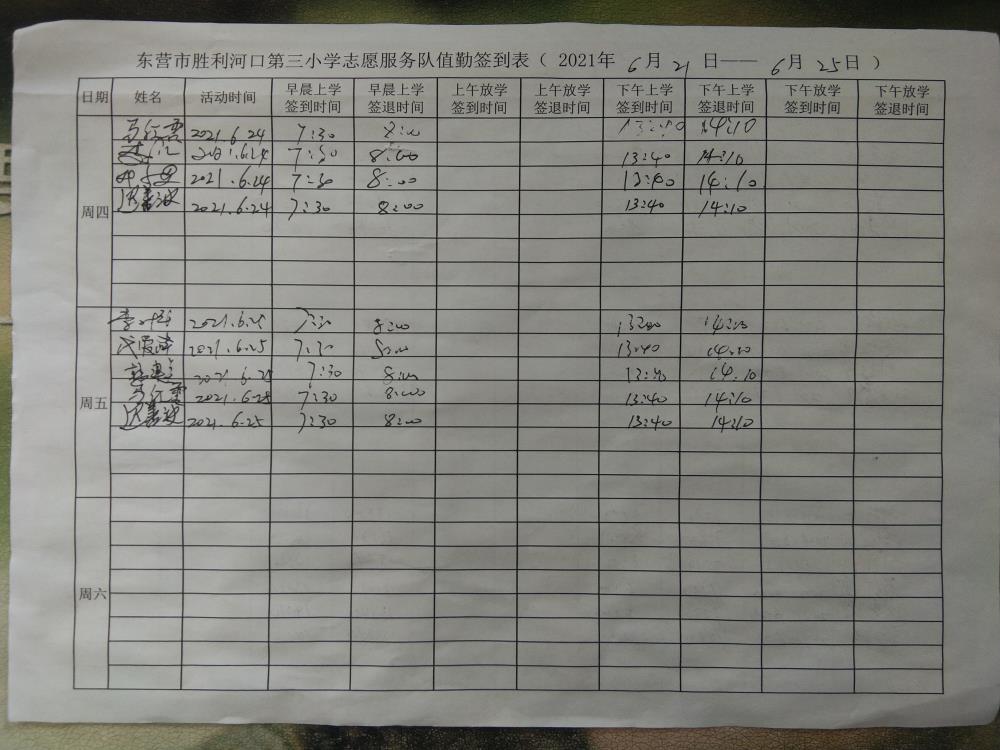 东营市胜利河口第三小学志愿服务队值勤签到表（ 2021年 6月 21 日—— 6月 25日 ）
日期 姓名 活动时间 早晨上学签到时间 早晨上学签退时间 上午放学签到时间 上午放学签退时间 下午上学签到时间 下午上学签退时间 下午放学签到时间 下午放学签退时间
周四
2021.6.24 7:30 8:00 13:40 14:10
2021.6.24 7:30 8:00 13:40 14:10
2021.6.24 7:30 8:00 13:40 14:10
2021.6.24 7:30 8:00 13:40 14:10
周五
2021.6.25 7:30 8:00 13:40 14:10
2021.6.25 7:30 8:00 13:40 14:10
2021.6.25 7:30 8:00 13:40 14:10
2021.6.25 7:30 8:00 13:40 14:10
2021.6.25 7:30 8:00 13:40 14:10
周六